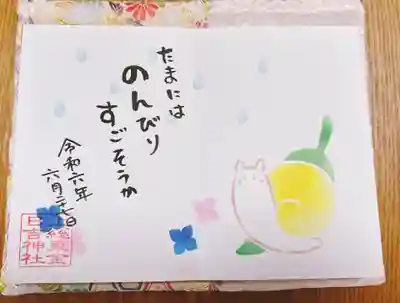 たまには
のんびり
すごそうか
令和六年
六月二十七日
総東金
日吉神社